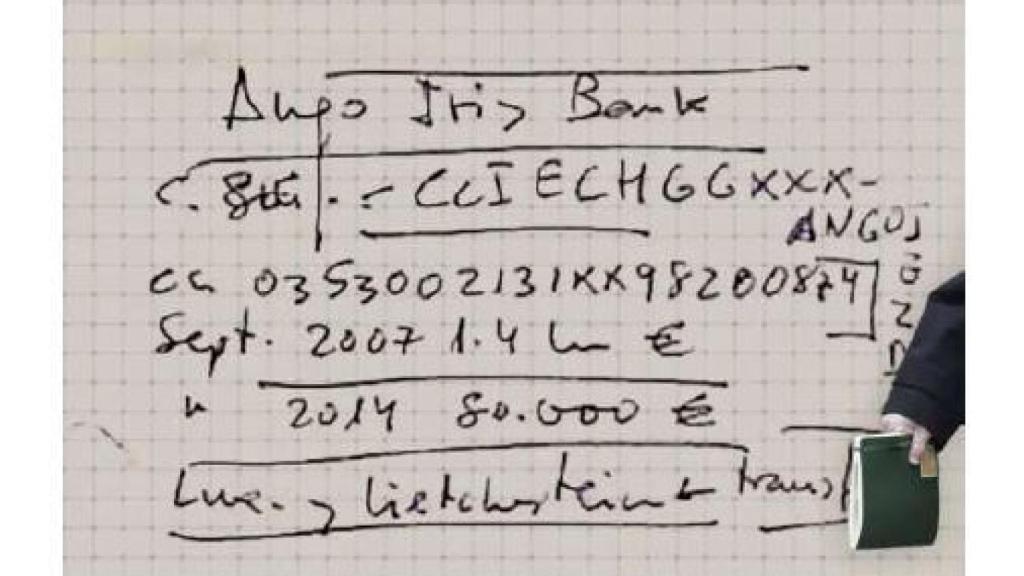 Ango Iris Bank
C. Stă. - CCIECHGGXXX-
ANGOJ
CC 0353002131XX98200874
Sept. 2007 1.4 Lm €
" 2014 80.000 €
Lux. → Lietchstein ← transf